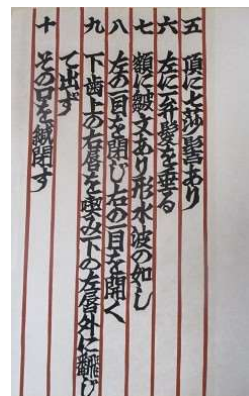 五 頂に七莎髻あり
六 左に一弁髪を垂る
七 額に皺文あり形水波の如し
八 左の一目を閉じ右の一目を開く
九 下歯上の右唇を喫み下の左唇外に飜じ
て出ず
十 その口を緘閉す